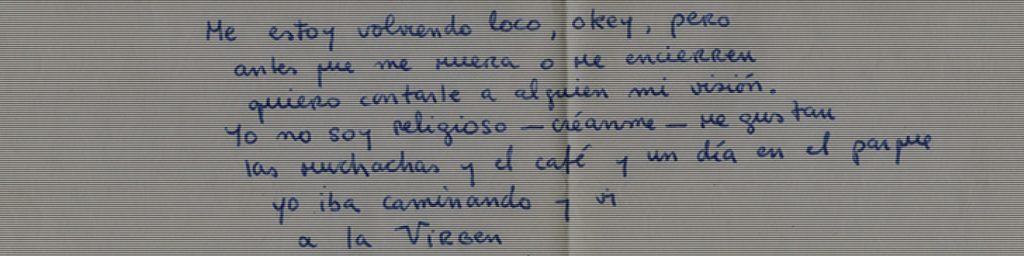 Me estoy volviendo loco, okey, pero
antes que me muera o me encierren
quiero contarle a alguien mi visión.
Yo no soy religioso — créanme — me gustan
las muchachas y el café y un día en el parque
yo iba caminando y vi
a la Virgen